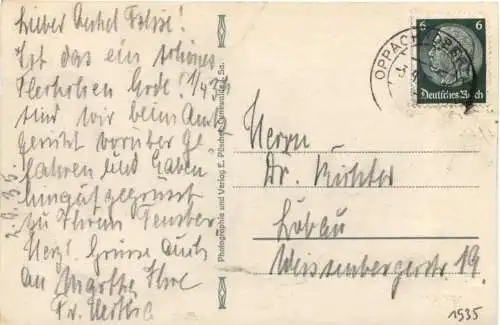 Lieber Onkel Felix!
Ist das ein schönes
Herbsten Gott! 1/4 5
sind wir beim Amts
gericht vorüber ge
fahren und haben
hinaufgegrüsst
zu Ihrem Fenster
Herzl. Grüsse auch
an Marthe Ihre
Fr.
2.9.35
Photographie und Verlag E. Püschel, i. Sa.
6 6
Deutsches Reich
OPPACH
Herrn
Dr. Richter
Löbau
Weissenbergerstr. 19.
1535